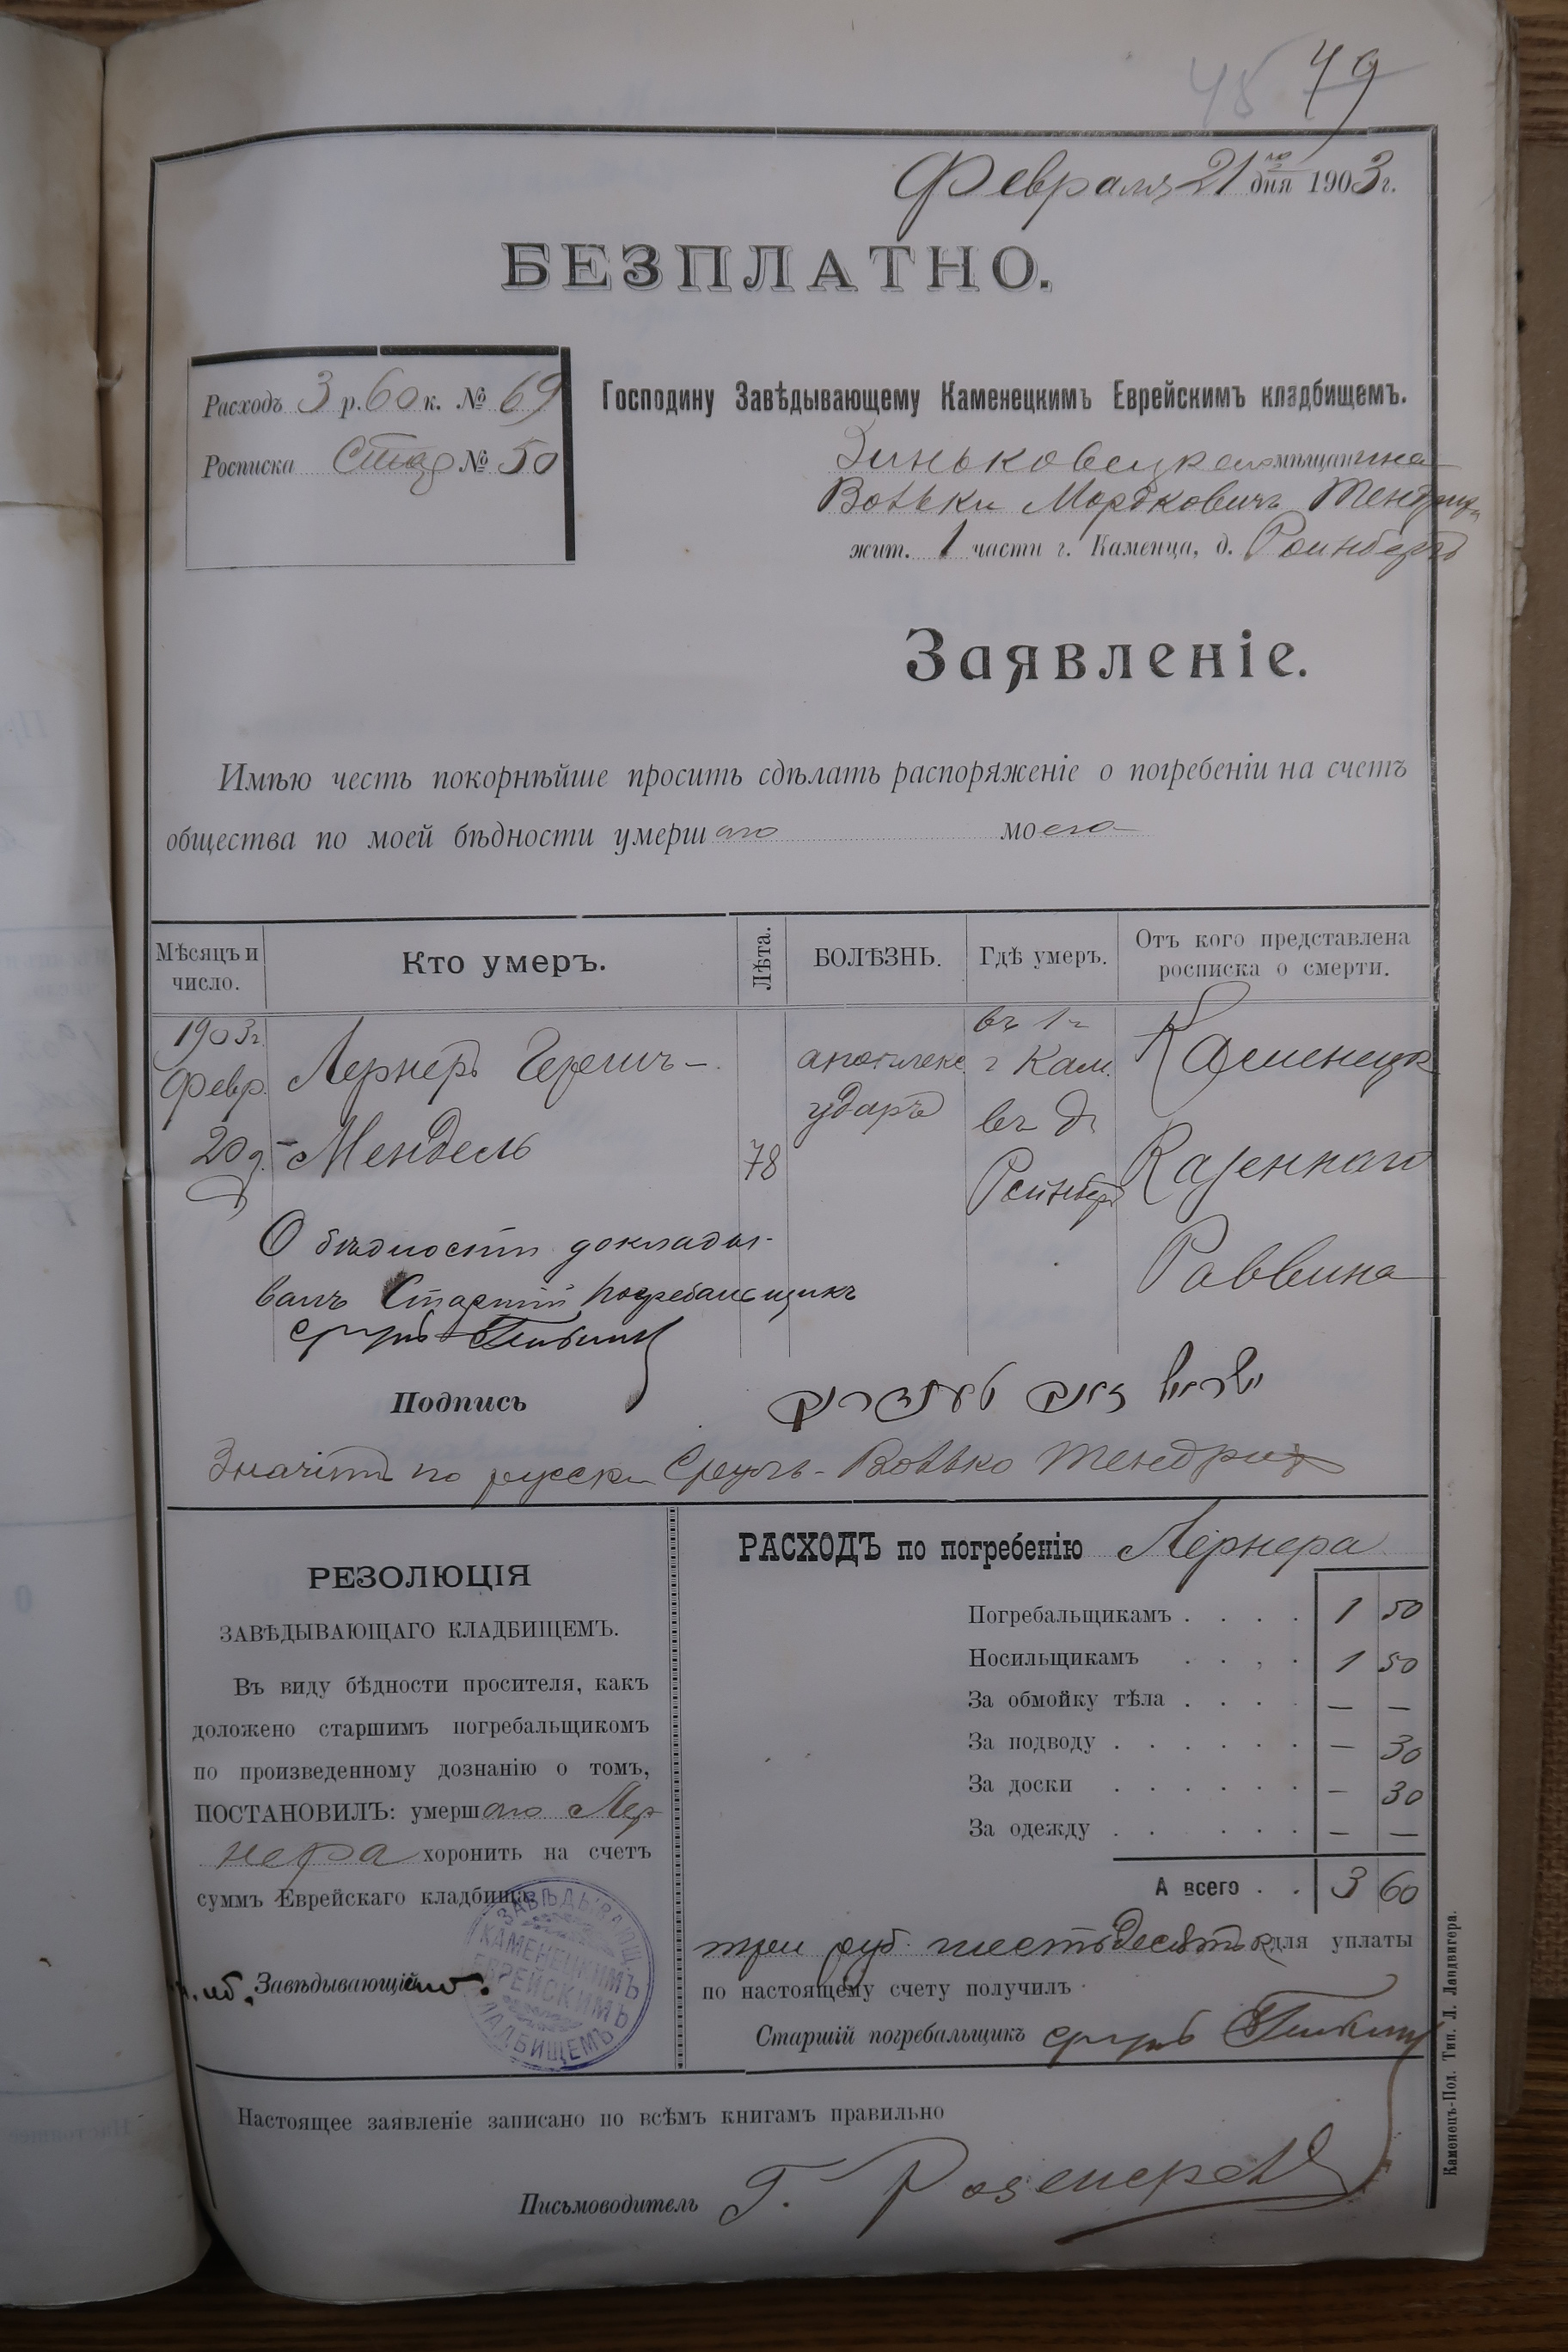 48 49
Февраля 21го дня 1903 г.
БЕЗПЛАТНО.
Расходъ 3 р. 60 к. № 69
Росписка № 50
Господину Завѣдывающему Каменецкимъ Еврейскимъ кладбищемъ.
Зиньковецкаго мѣщанина
Вольки Мордковичъ Тендриха
жит. 1 части г. Каменца, д.
Заявленіе.
Имѣю честь покорнѣйше просить сдѣлать распоряженіе о погребеніи на счетъ
общества по моей бѣдности умершаго моего
Мѣсяцъ и число. Кто умеръ. Лѣта. БОЛѢЗНЬ. Гдѣ умеръ. Отъ кого представлена росписка о смерти.
1903 г. Февр. 20 д.
Лернеръ Гершъ-
-Мендель
78
апоплекс. ударъ
въ 1 ч. г Кам. въ д.
Каменецк. Казеннаго Раввина
О бѣдности доклады-
валъ Старшій погребальщикъ
Сруль
Подпись
Значитъ по русски Сруль-Волько Тендрих
РЕЗОЛЮЦІЯ
ЗАВѢДЫВАЮЩАГО КЛАДБИЩЕМЪ.
Въ виду бѣдности просителя, какъ
доложено старшимъ погребальщикомъ
по произведенному дознанію о томъ,
ПОСТАНОВИЛЪ: умершаго Лер-
нера хоронить на счетъ
суммъ Еврейскаго кладбища.
Завѣдывающій
ЗАВѢДЫВАЮЩ. КАМЕНЕЦКИМЪ ЕВРЕЙСКИМЪ КЛАДБИЩЕМЪ
РАСХОДЪ по погребенію Лернера
Погребальщикамъ . . . . 1 50
Носильщикамъ . . . . 1 50
За обмойку тѣла . . . . — —
За подводу . . . . . . — 30
За доски . . . . . . — 30
За одежду . . . . . . — —
А всего . . 3 60
три руб. шестьдесятъ к для уплаты
по настоящему счету получилъ
Старшій погребальщикъ Сруль
Настоящее заявленіе записано по всѣмъ книгамъ правильно
Письмоводитель Г.
Каменецъ-Под. Тип. Л. Ландвигера.